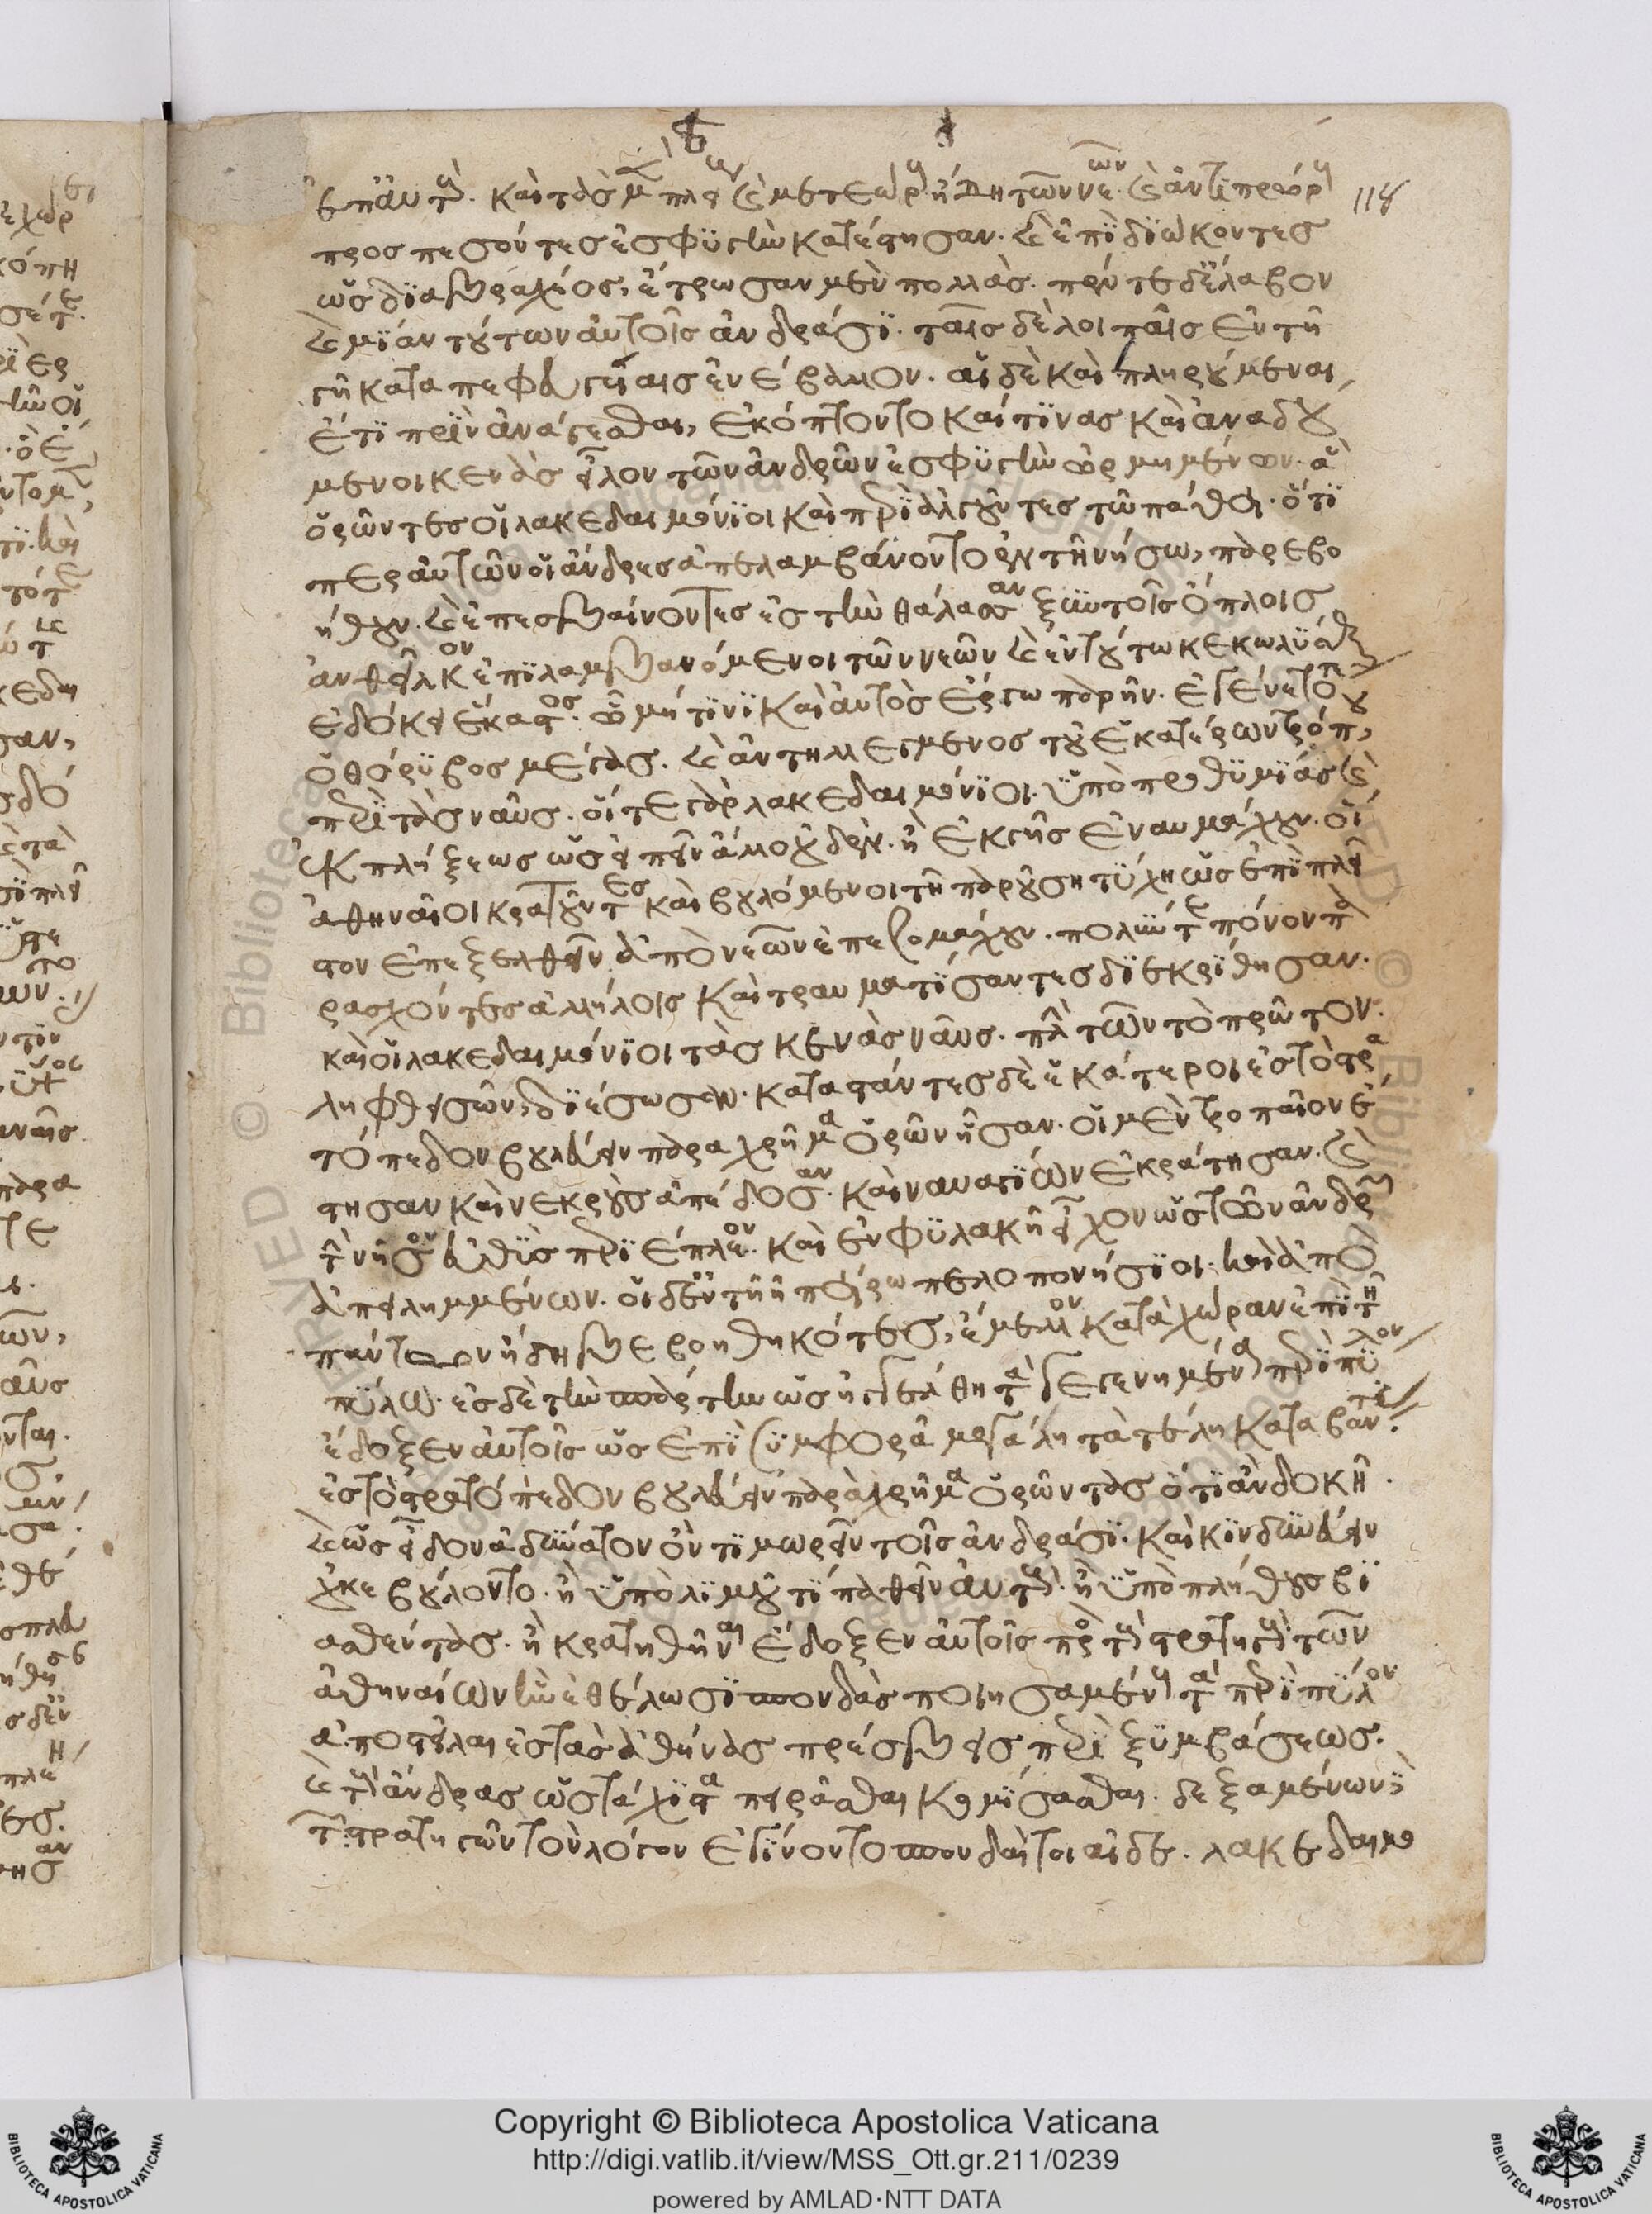 118
ἐπ' αὐτούς. καὶ τὰς μὲν πλείους καὶ μετεώρους ἤδη τῶν νεῶν καὶ ἀντιπρώρους
προσπεσόντες ἐς φυγὴν κατέστησαν. καὶ ἐπιδιώκοντες
ὡς διαβραχέος, ἔτρωσαν μὲν πολλάς. πέντε δ' ἔλαβον
καὶ μίαν τούτων αὐτοῖς ἀνδράσι. ταῖς δὲ λοιπαῖς ἐν τῆ
γῆ καταπεφευγυίαις ἐνέβαλλον. αἱ δὲ καὶ πληρούμεναι
ἔτι πρὶν ἀνάγεσθαι, ἐκόπτοντο καί τινας καὶ ἀναδού
μενοι κενὰς εἷλον τῶν ἀνδρῶν ἐς φυγὴν ὡρμημένων. ἃ
ὁρῶντες οἱ λακεδαιμόνιοι καὶ περιαλγοῦντες τῶ πάθει. ὅτι
περ αὐτῶν οἱ ἄνδρες ἀπελαμβάνοντο ἐν τῆ νήσω, παρεβο
ήθουν. καὶ ἐπεσβαίνοντες ἐς τὴν θάλασσαν ξὺν τοῖς ὅπλοις
ἀνθεῖλκον ἐπιλαμβανόμενοι τῶν νεῶν καὶ ἐν τούτω κεκωλύσθαι
ἐδόκει ἕκαστος. ὧ μή τινι καὶ αὐτὸς ἔργω παρῆν. ἐγένετό τε
ὁ θόρυβος μέγας. καὶ ἀντηλλαγμένος τοῦ ἑκατέρων τρόπου
περὶ τὰς ναῦς. οἵ τε γὰρ λακεδαιμόνιοι ὑπὸ προθυμίας καὶ
ἐκπλήξεως ὡς εἰπεῖν ἄλλο οὐδὲν ἢ ἐκ γῆς ἐναυμάχουν. οἵ
ἀθηναῖοι κρατοῦντες καὶ βουλόμενοι τῆ παρούση τύχη ὡς ἐπὶ πλεῖ
στον ἐπεξελθεῖν ἀπὸ νεῶν ἐπεζομάχουν. πολύν τε πόνον πα
ρασχόντες ἀλλήλοις καὶ τραυματίσαντες διεκρίθησαν.
καὶ οἱ λακεδαιμόνιοι τὰς κενὰς ναῦς. πλὴν τῶν τὸ πρῶτον
ληφθεισῶν, διέσωσαν. καταστάντες δὲ ἑκάτεροι ἐς τὸ στρα
τόπεδον βουλεύειν παραχρῆμα ὁρῶν ἦσαν. οἱ μὲν τροπαῖον ἔ
στησαν καὶ νεκροὺς ἀπέδοσαν. καὶ ναυαγίων ἐκράτησαν. καὶ
τὴν νῆσον εὐθὺς περιέπλεον. καὶ ἐν φυλακῆ εἶχον ὡς τῶν ἀνδρῶν
ἀπειλημμένων. οἱ δ' ἐν τῆ ἠπείρω πελοπονήσιοι. καὶ ἀπὸ
πάντων ἤδη βεβοηθηκότες, ἔμενον κατὰ χώραν ἐπὶ τῆ
πύλω. ἐς δὲ τὴν σπάρτην ὡς ἠγγέλθη τὰ γεγενημένα περὶ πύλον
ἔδοξεν αὐτοῖς ὡς ἐπὶ ξυμφορᾶ μεγάλη τὰ τέλη καταβάντας
ἐς τὸ στρατόπεδον βουλεύειν παραχρῆμα ὁρῶντας ὅ τι ἂν δοκῆ.
καὶ ὡς εἶδον ἀδύνατον ὂν τιμωρεῖν τοῖς ἀνδράσι. καὶ κινδυνεύειν
οὐκ ἐβούλοντο. ἢ ὑπὸ λιμοῦ τι παθεῖν αὐτούς. ἢ ὑπὸ πλήθους βι
ασθέντας. ἢ κρατηθῆναι ἔδοξεν αὐτοῖς πρὸς τοὺς στρατηγοὺς τῶν
ἀθηναίων ἢν ἐθέλωσι σπονδὰς ποιησαμένους τὰ περὶ πύλον
ἀποστεῖλαι ἐς τὰς ἀθήνας πρέσβεις περὶ ξυμβάσεως.
καὶ τοὺς ἄνδρας ὡς τάχιστα πειρᾶσθαι κομίσασθαι. δεξαμένων δὲ
τῶν στρατηγῶν τὸν λόγον ἐγίνοντο σπονδαὶ τοιαίδε. λακεδαιμο
Copyright © Biblioteca Apostolica Vaticana
http://digi.vatlib.it/view/MSS_Ott.gr.211/0239
powered by AMLAD·NTT DATA
BIBLIOTECA APOSTOLICA VATICANA
BIBLIOTECA APOSTOLICA VATICANA